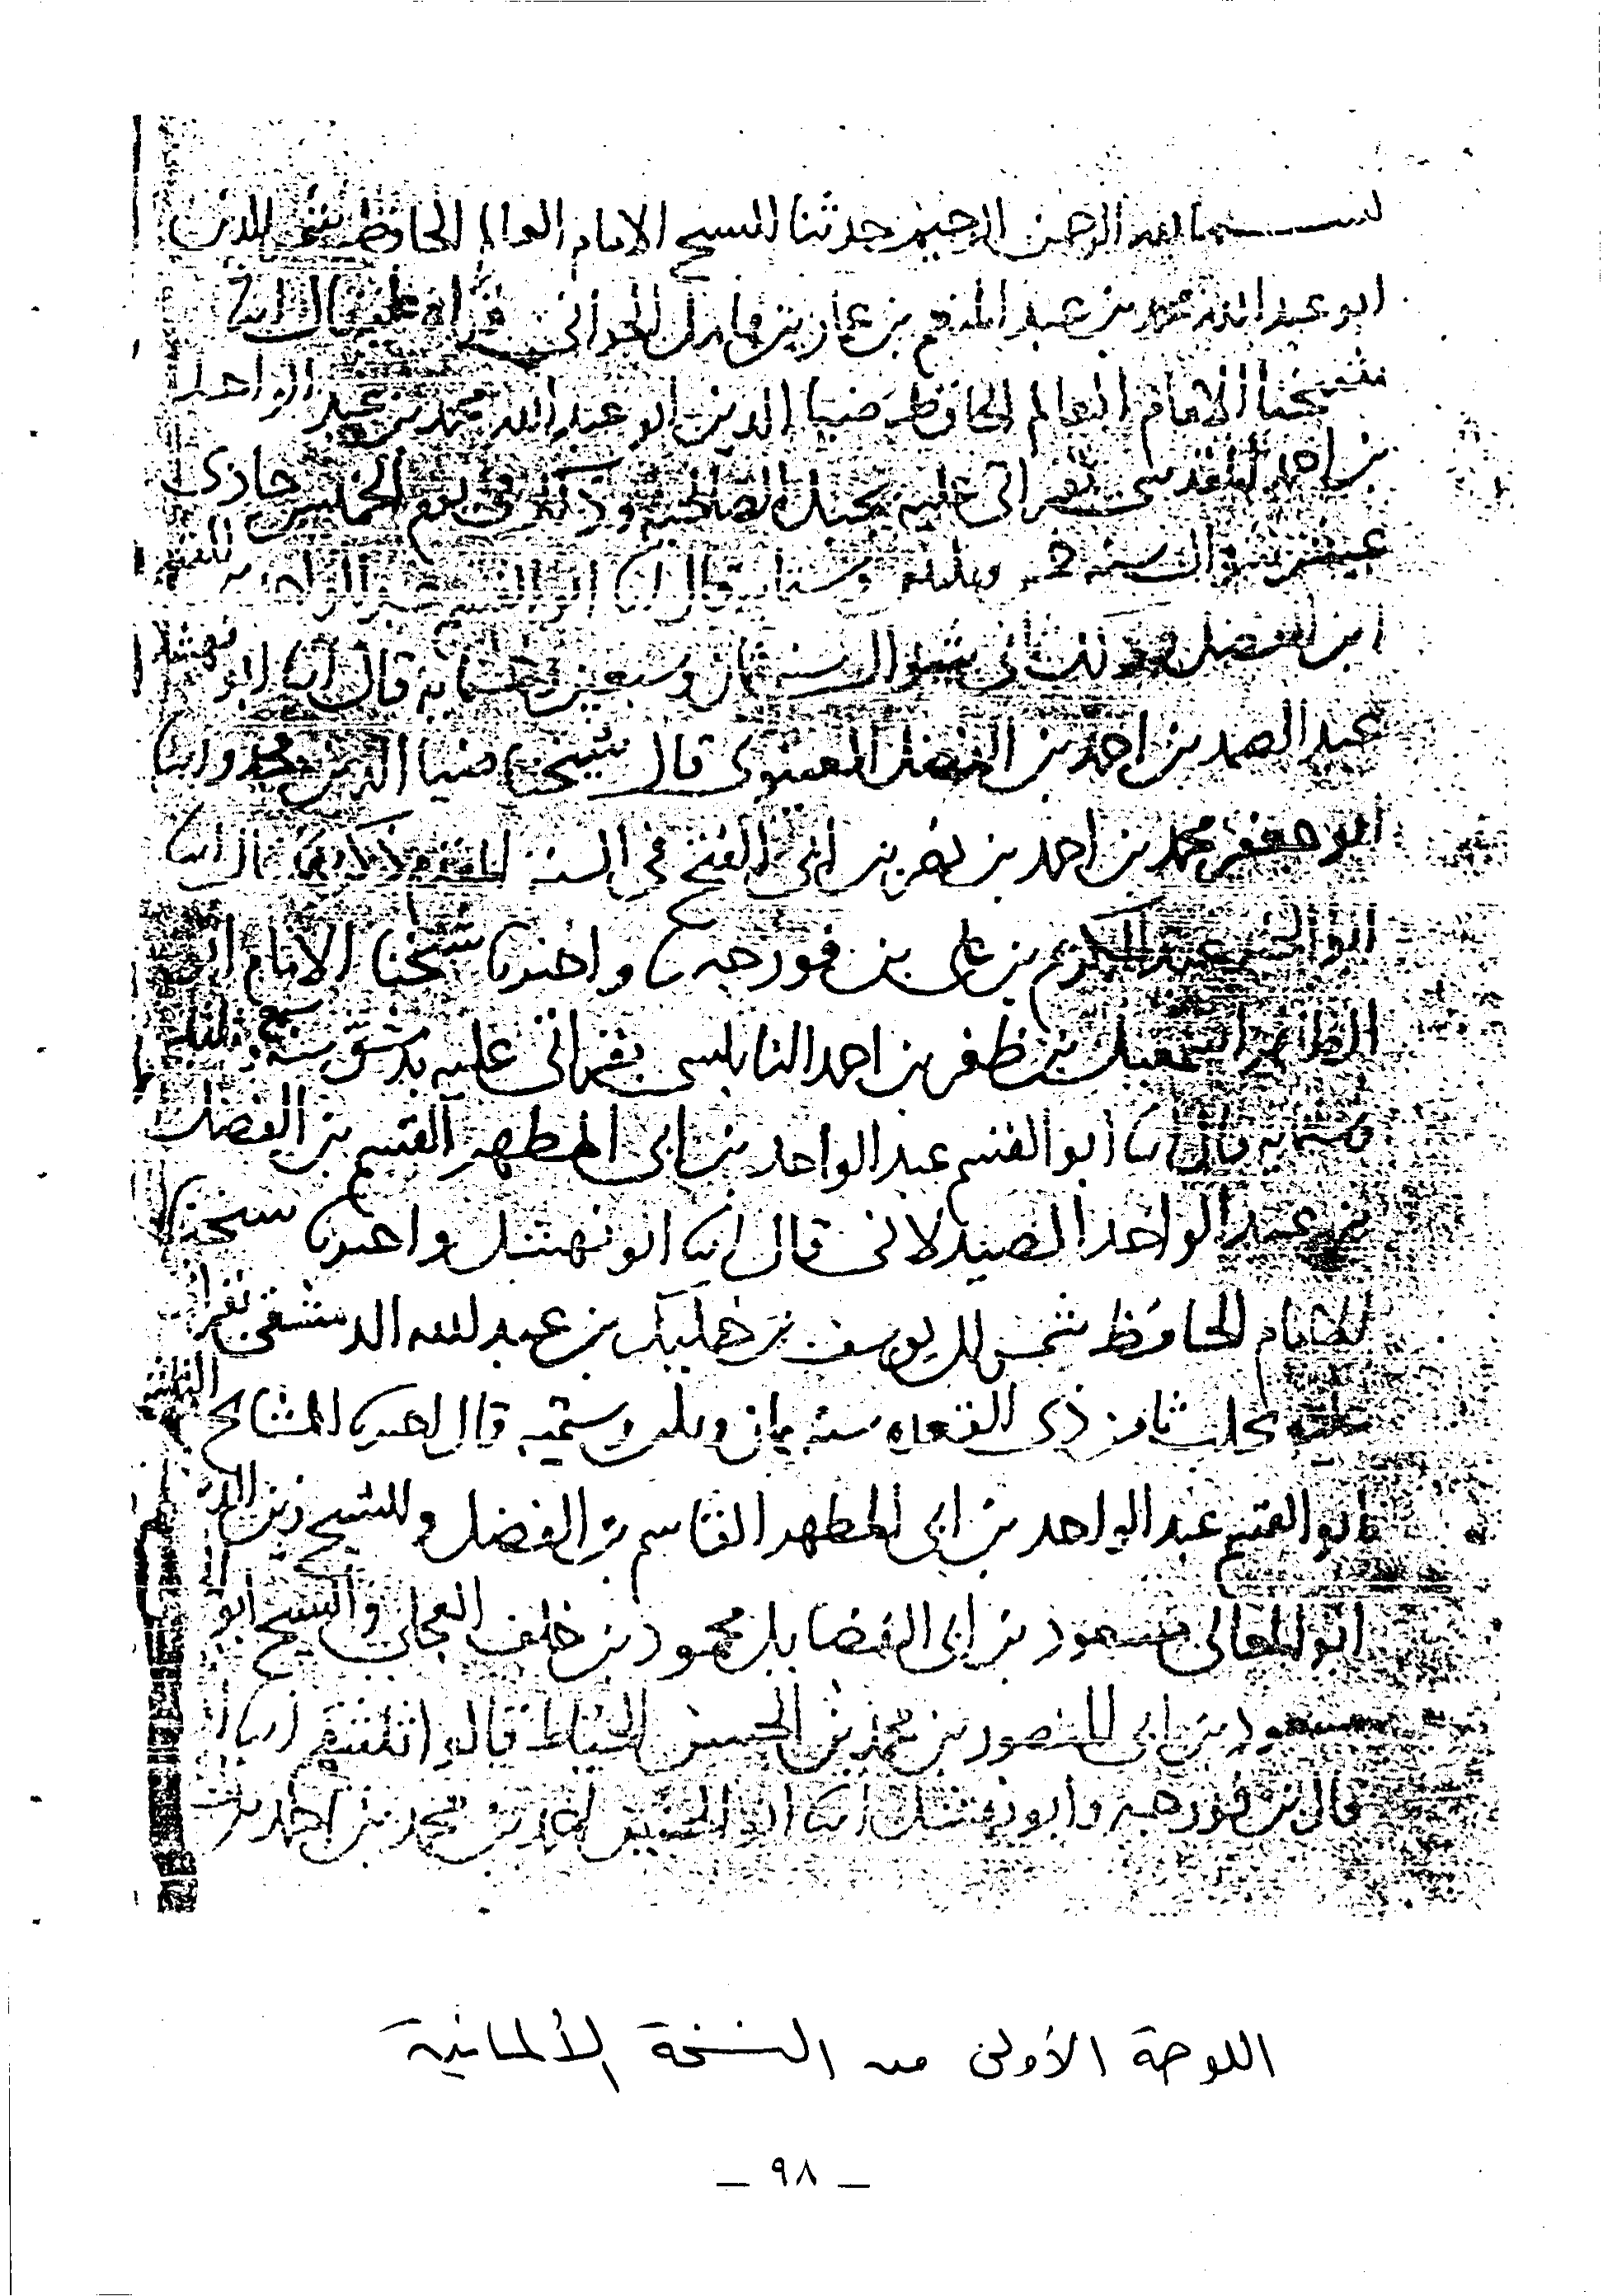 بسم الله الرحمن الرحيم حدثنا الشيخ الامام العالم الحافظ تقي الدين
ابو عبد الله محمد بن عبد المنعم بن عمار بن هامل الحراني قراة عليه قال انا
شيخنا الامام العالم الحافظ ضيا الدين ابو عبد الله محمد بن عبد الواحد
بن احمد المقدسي بقراتي عليه بجبل الصالحية وذلك في يوم الخميس حادي
عشر شوال سنة قال انا ابو القسم عبد الواحد بن القسم
ابن الفضل وذلك في شوال سنة ثمان وسبعين وخمسمايه قال انا ابو نهشل
عبد الصمد بن احمد بن الفضل العنبري قال شيخنا ضيا الدين محمد وانبا
ابو جعفر محمد بن احمد بن نصر بن ابي الفتح في السنة قال انبا
ابو الخير عبد الكريم بن علي بن فورجه ح واخبرنا شيخنا الامام ابو
الطاهر اسمعيل بن ظفر بن احمد النابلسي بقراتي عليه بدمشق سنة سبع وثلثين
وستمايه قال انا ابو القسم عبد الواحد بن ابي المطهر القسم بن الفضل
بن عبد الواحد الصيدلاني قال انا ابو نهشل واخبرنا شيخنا
الامام الحافظ شمس الدين يوسف بن خليل بن عبد الله الدمشقي بقراتي
عليه بحلب ثامن ذي القعده سنة ثمان وثلثين وستميه قال اخبرنا المشايخ الثلثة
ابو القسم عبد الواحد بن ابي المطهر القاسم بن الفضل والشيخ زين الدين
ابو المعالي مسعود بن ابي الفضايل محمود بن خلف العجلي والشيخ ابو
مسعود بن ابي المنصور بن محمد بن الحسن الخياط قالوا ثلثتهم انبا
قال بن فورجه وابو نهشل انبا ابو الحسين احمد بن محمد بن احمد بن
اللوحة الأولى من النسخة الألمانية
_ ٩٨ _